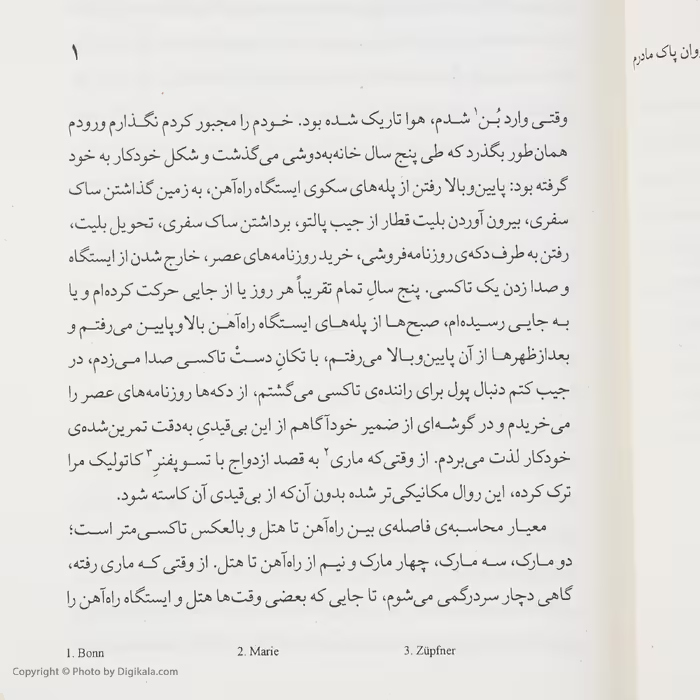 ۱
وقتی وارد بُن۱ شدم، هوا تاریک شده بود. خودم را مجبور کردم نگذارم ورودم
همان‌طور بگذرد که طی پنج سال خانه‌به‌دوشی می‌گذشت و شکل خودکار به خود
گرفته بود: پایین‌وبالا رفتن از پله‌های سکوی ایستگاه راه‌آهن، به زمین گذاشتن ساک
سفری، بیرون آوردن بلیت قطار از جیب پالتو، برداشتن ساک سفری، تحویل بلیت،
رفتن به طرف دکه‌ی روزنامه‌فروشی، خرید روزنامه‌های عصر، خارج شدن از ایستگاه
و صدا زدن یک تاکسی. پنج سالِ تمام تقریباً هر روز یا از جایی حرکت کرده‌ام و یا
به جایی رسیده‌ام، صبح‌ها از پله‌های ایستگاه راه‌آهن بالاوپایین می‌رفتم و
بعدازظهرها از آن پایین‌وبالا می‌رفتم، با تکانِ دستْ تاکسی صدا می‌زدم، در
جیب کتم دنبال پول برای راننده‌ی تاکسی می‌گشتم، از دکه‌ها روزنامه‌های عصر را
می‌خریدم و در گوشه‌ای از ضمیر خودآگاهم از این بی‌قیدیِ به‌دقت تمرین‌شده‌ی
خودکار لذت می‌بردم. از وقتی‌که ماری۲ به قصد ازدواج با تسوپفنرِ۳ کاتولیک مرا
ترک کرده، این روال مکانیکی‌تر شده بدون آن‌که از بی‌قیدی آن کاسته شود.
معیار محاسبه‌ی فاصله‌ی بین راه‌آهن تا هتل و بالعکس تاکسی‌متر است؛
دو مارک، سه مارک، چهار مارک و نیم از راه‌آهن تا هتل. از وقتی که ماری رفته،
گاهی دچار سردرگمی می‌شوم، تا جایی که بعضی وقت‌ها هتل و ایستگاه راه‌آهن را
1. Bonn 2. Marie 3. Züpfner
Copyright © Photo by Digikala.com
وان پاک مادرم